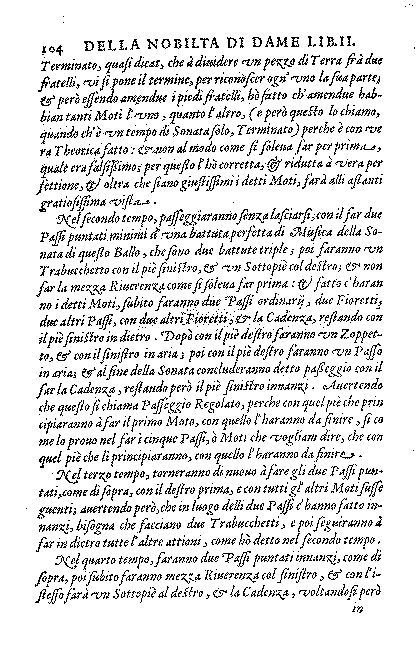 104 DELLA NOBILTA DI DAME LIB. II.
Terminato, quasi dicat, che à diuidere vn pezzo di Terra frà due
fratelli, vi si pone il termine, per riconoscer ogn'vno la sua parte;
& però essendo amendue i piedi fratelli, hò fatto ch'amendue hab-
bian tanti Moti l'vno, quanto l'altro, (e però questo lo chiamo,
quando ch'è vn tempo di Sonata solo, Terminato) perche è con ve
ra Theorica fatto: & non al modo come si soleua far per prima,
quale era falsissimo; per questo l'hò corretta, & ridutta à vera per
fettione, & oltra che siano giustissimi i detti Moti, farà alli astanti
gratiosissima vista.
Nel secondo tempo, passeggiaranno senza lasciarsi, con il far due
Passi puntati minimi d'vna battuta perfetta di Musica della So-
nata di questo Ballo, che sono due battute triple; poi faranno vn
Trabucchetto con il piè sinistro, & vn Sottopiè col destro; & non
far la mezza Riuerenza come si soleua far prima: & fatto c'haran
no i detti Moti, subito faranno due Passi ordinarij, due Fioretti,
due altri Passi, con due altri Fioretti, & la Cadenza, restando con
il piè sinistro in dietro. Dopò con il piè destro faranno vn Zoppet-
to, & con il sinistro in aria; poi con il piè destro faranno vn Passo
in aria; & al fine della Sonata concluderanno detto passeggio con il
far la Cadenza, restando però il piè sinistro innanzi. Auertendo
che questo si chiama Passeggio Regolato, perche con quel piè che prin
cipiaranno à far il primo Moto, con quello l'haranno da finire, sì co
me lo prouo nel far i cinque Passi, ò Moti che vogliam dire, che con
quel piè che li principiaranno, con quello l'haranno da finire.
Nel terzo tempo, torneranno di nuouo à fare gli due Passi pun-
tati, come di sopra, con il destro prima, e con tutti gl'altri Moti susse
guenti; auertendo però, che in luogo delli due Passi c'hanno fatto in-
nanzi, bisogna che facciano due Trabucchetti, e poi seguiranno à
far in dietro tutte l'altre attioni, come hò detto nel secondo tempo.
Nel quarto tempo, faranno due Passi puntati innanzi, come di
sopra, poi subito faranno mezza Riuerenza col sinistro, & con l'i-
stesso farà vn Sottopiè al destro, & la Cadenza, voltandosi però
in